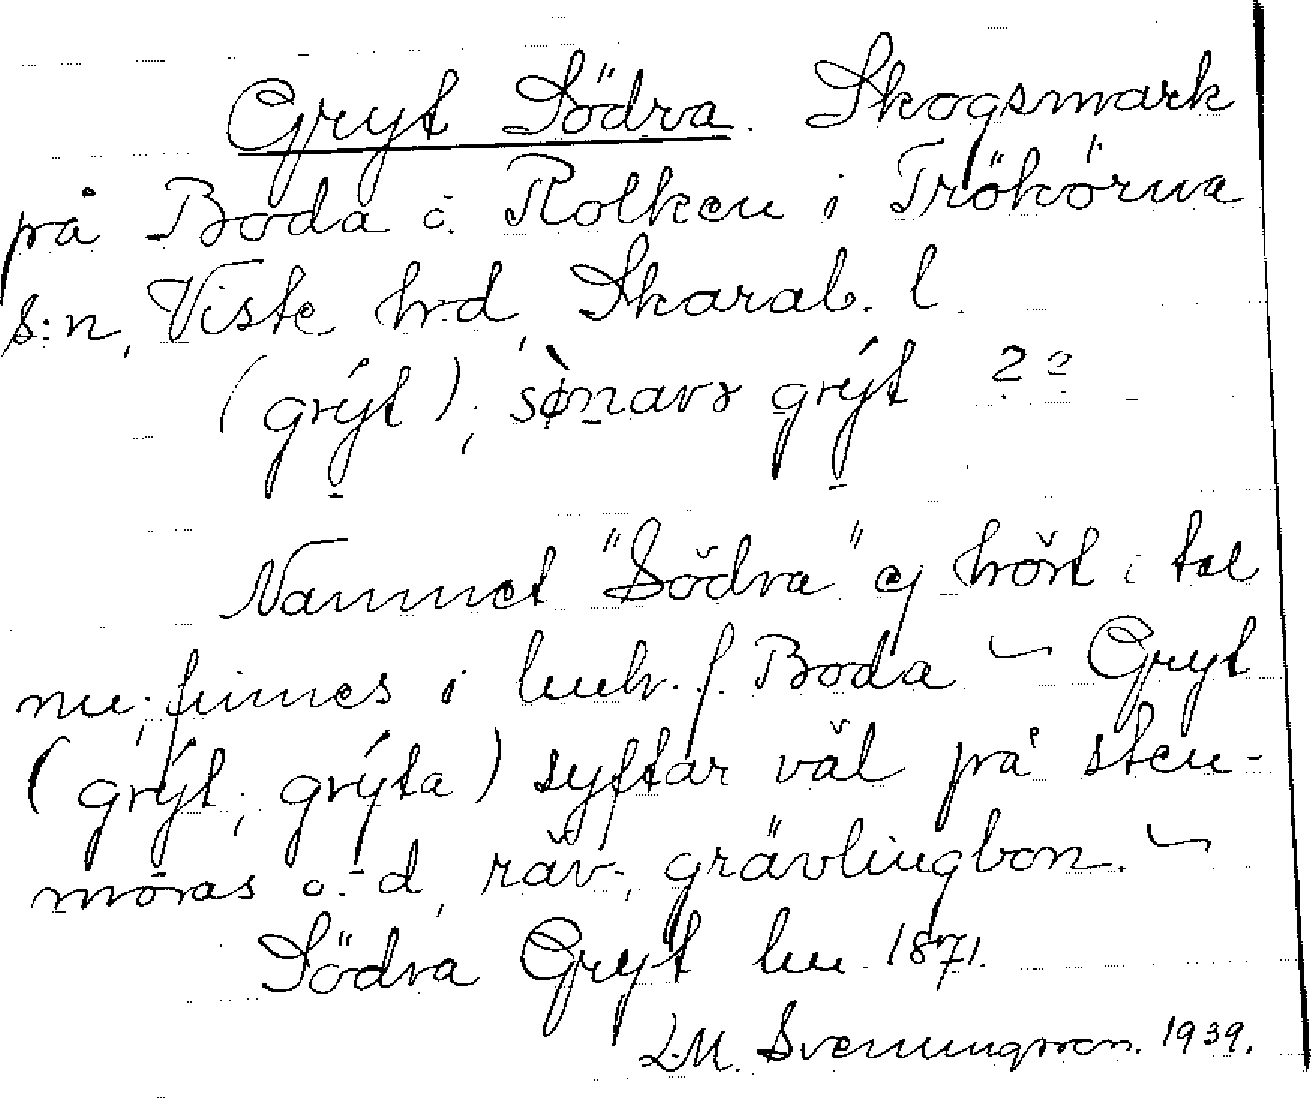 Gryt Södra. Skogsmark
på Boda o. Rolken i Trökörna
s:n, Viste hrd, Skarab. l.
(grýt); sønavr grýt 2º
Namnet "Södra" ej hört i tal
nu; finnes i lmh. f. Boda – Gryt
(grýt; grýta) syftar väl på sten-
möras o. d, räv-, grävlingbon. –
Södra Gryt lm 1871.
L.M. Svenungsson. 1939.